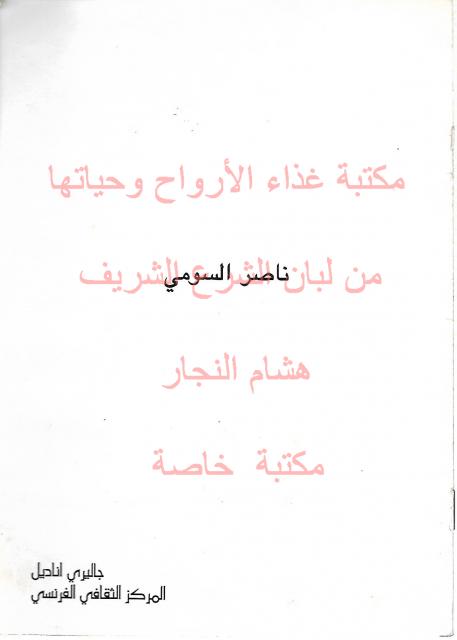 مكتبة غذاء الأرواح وحياتها
من لبان الشرع الشريف
ناصر السومي
هشام النجار
مكتبة خاصة
جاليري اناديل
المركز الثقافي الفرنسي